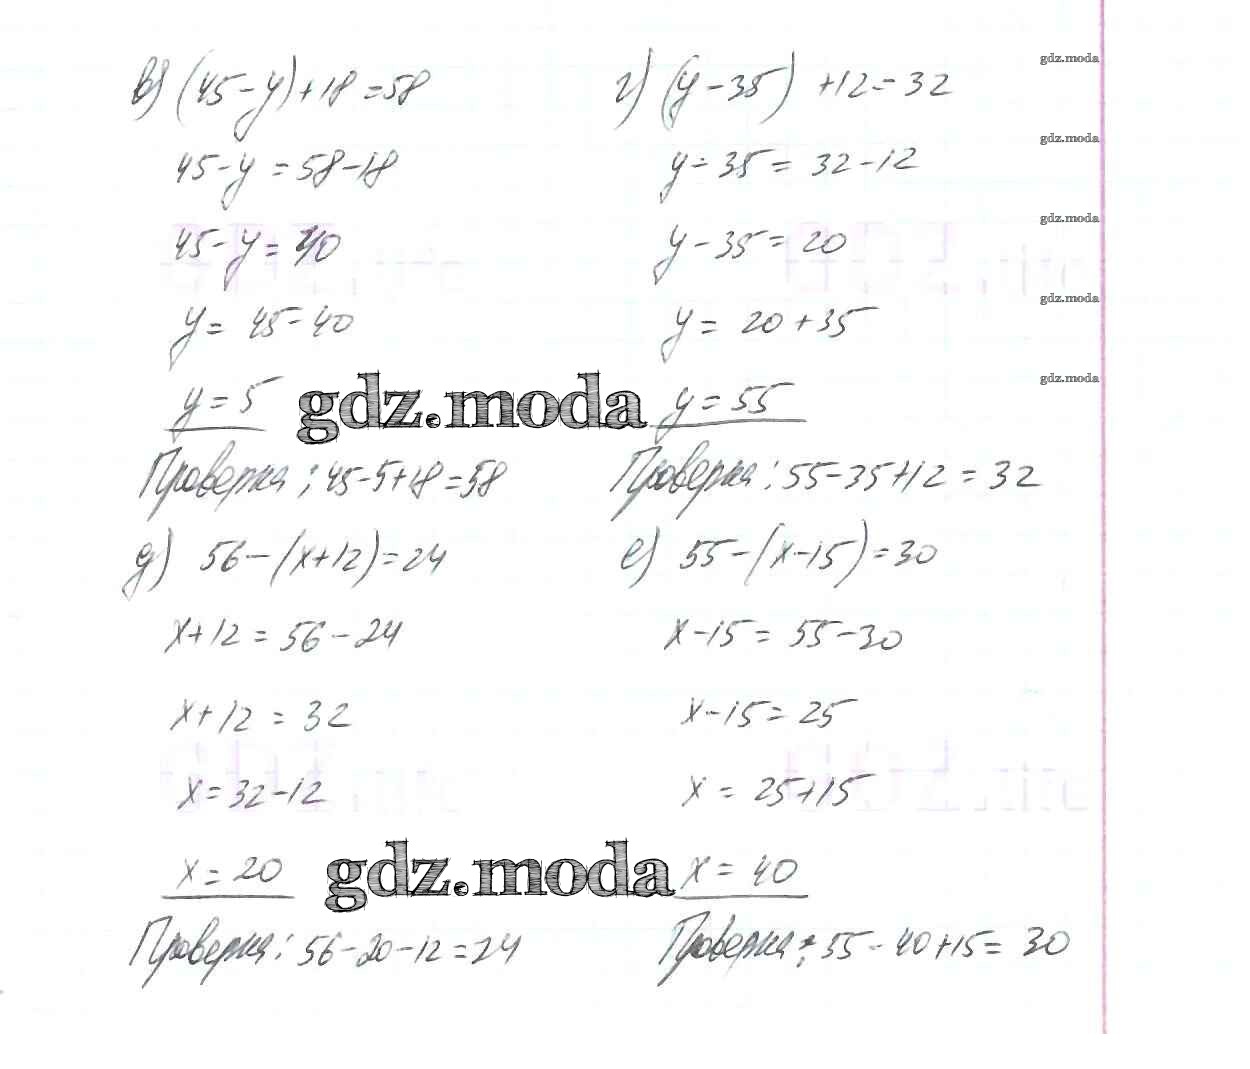 в) (45-y)+18=58
45-y=58-18
45-y=40
y=45-40
y=5
Проверка: 45-5+18=58
г) (y-35)+12=32
y-35=32-12
y-35=20
y=20+35
y=55
Проверка: 55-35+12=32
gdz.moda
д) 56-(x+12)=24
x+12=56-24
x+12=32
x=32-12
x=20
Проверка: 56-20-12=24
е) 55-(x-15)=30
x-15=55-30
x-15=25
x=25+15
x=40
Проверка: 55-40+15=30
gdz.moda
gdz.moda
gdz.moda
gdz.moda
gdz.moda
gdz.moda